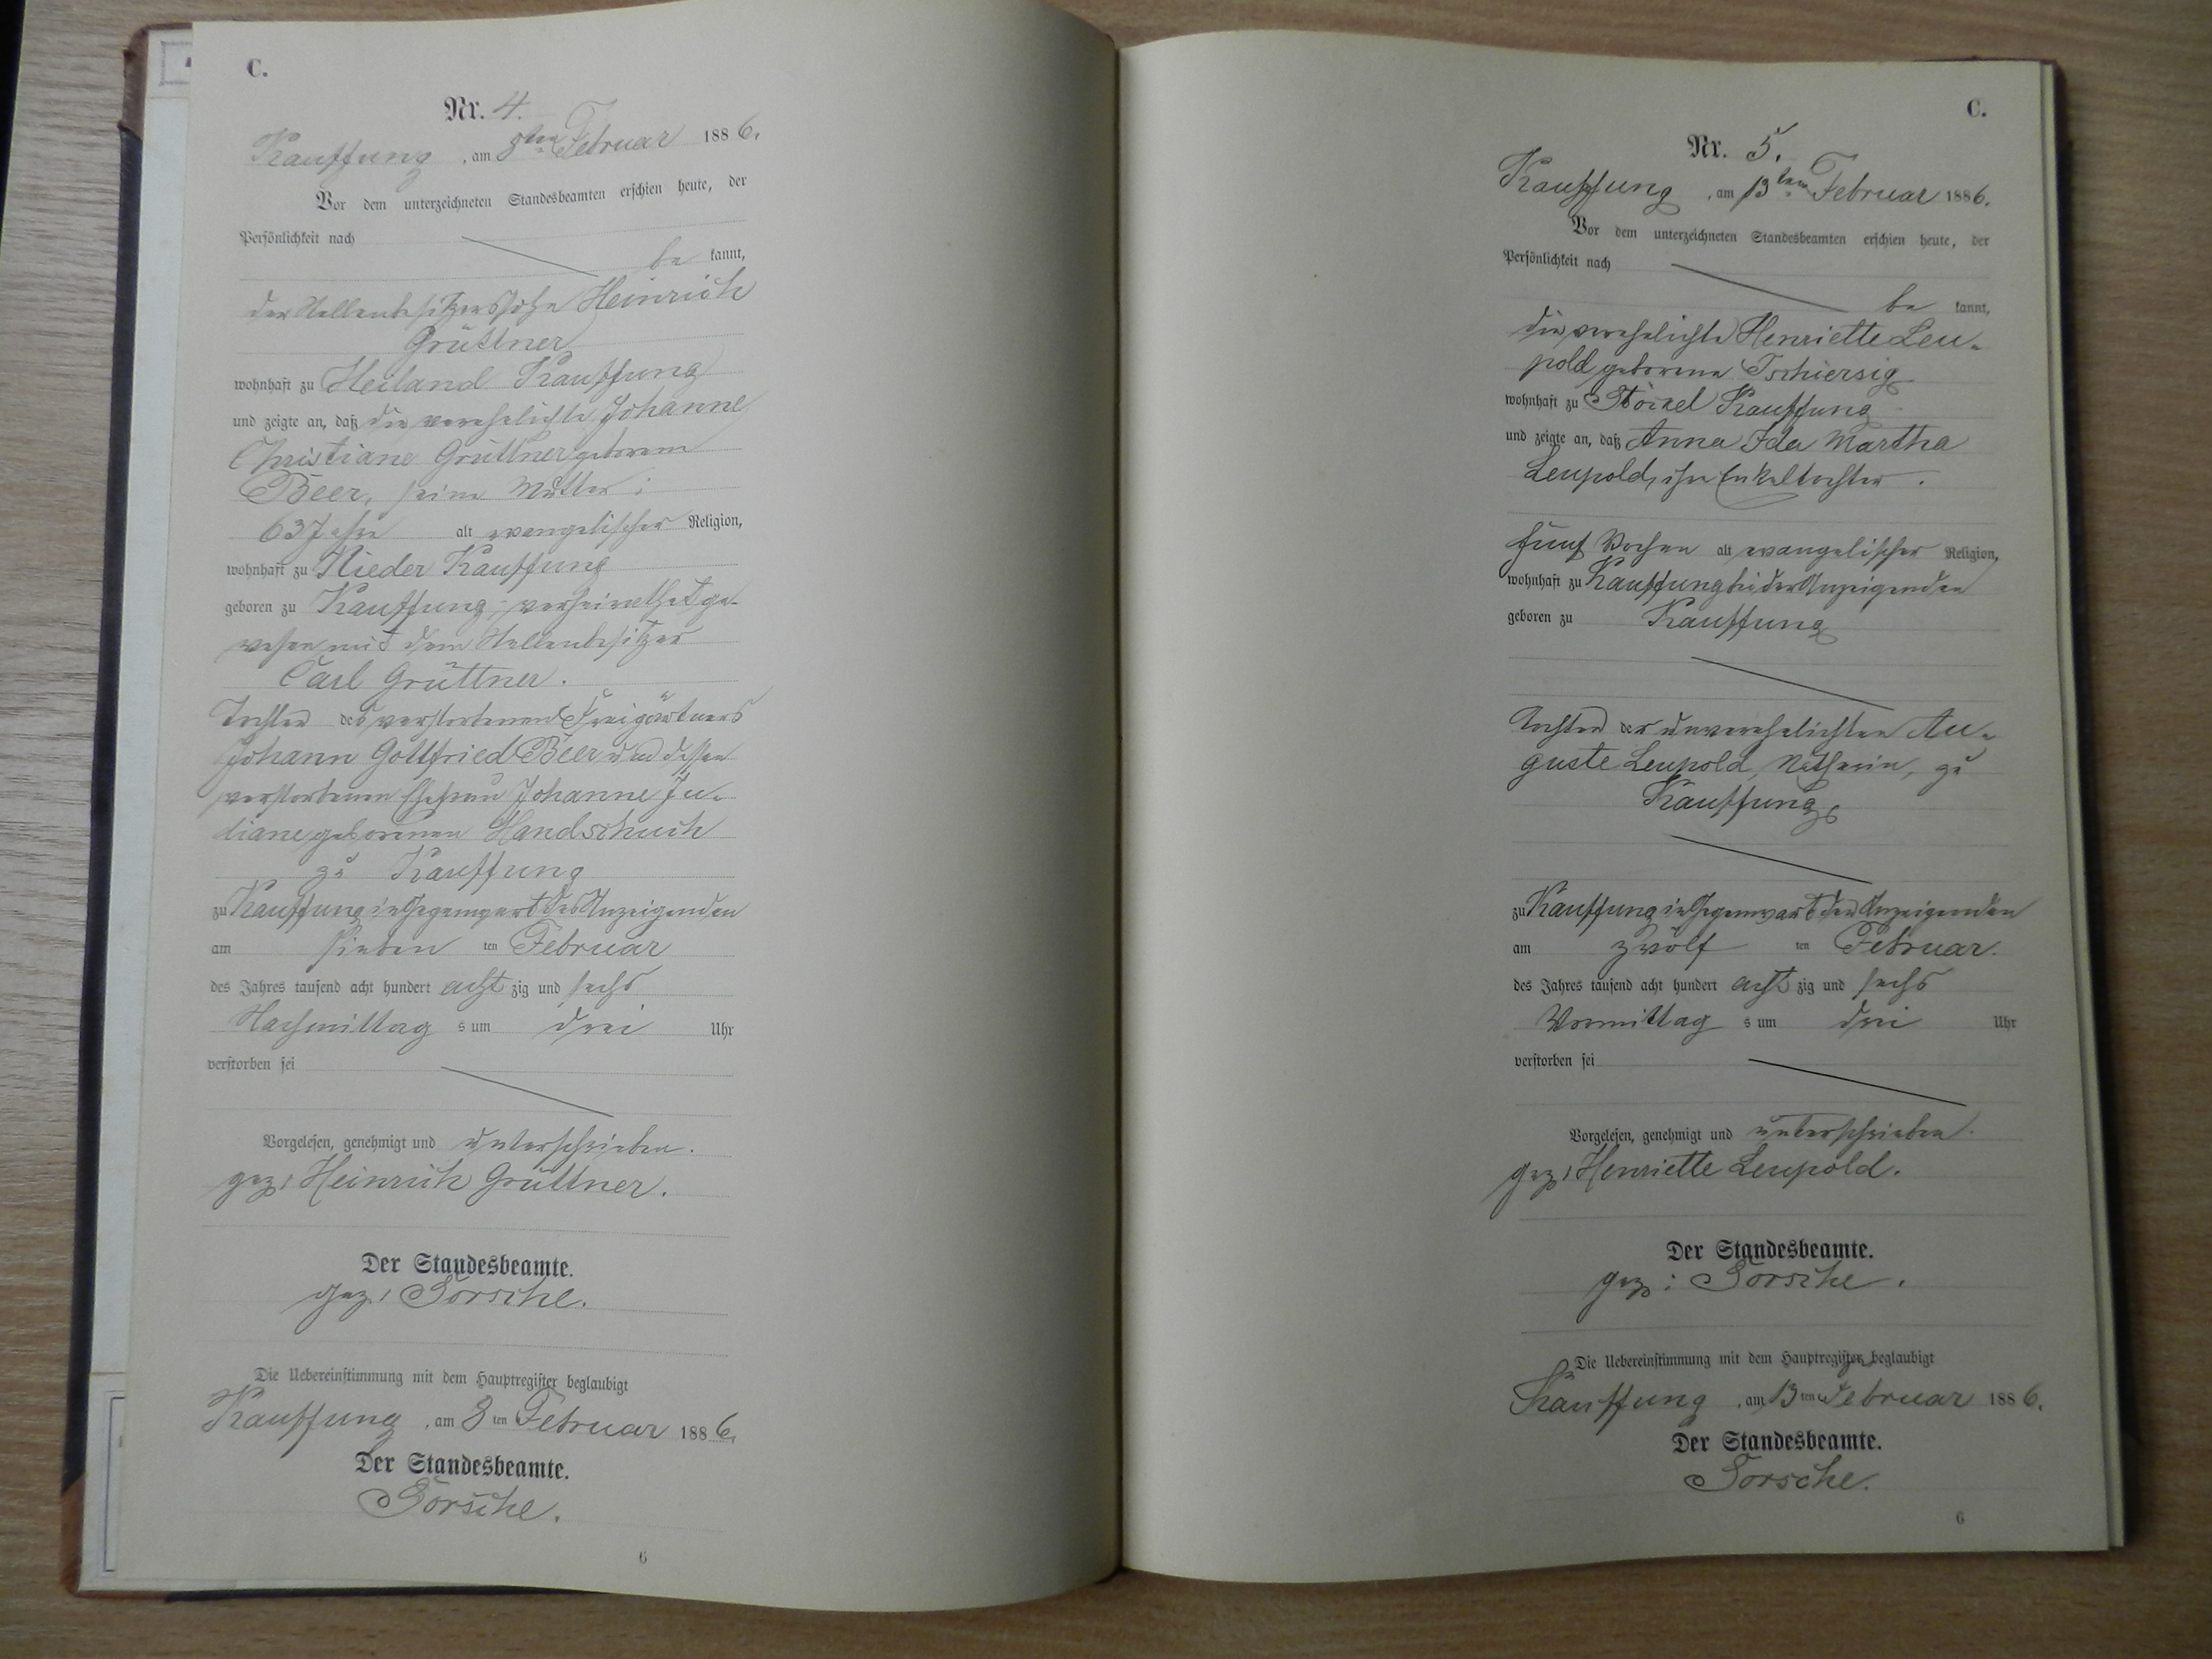 C.
Nr. 4.
Kauffung, am 8ten Februar 1886.
Vor dem unterzeichneten Standesbeamten erschien heute, der
Persönlichkeit nach
be kannt,
der Stellenbesitzerssohn Heinrich
Grüttner
wohnhaft zu Heiland Kauffung
und zeigte an, daß die verehelichte Johanne
Christiane Grüttner geborene
Beer, seine Mutter;
63 Jahre alt evangelischer Religion,
wohnhaft zu Nieder Kauffung
geboren zu Kauffung; verheirathet ge-
wesen mit dem Stellenbesitzer
Carl Grüttner.
Tochter des verstorbenen Freigärtners
Johann Gottfried Beer und dessen
verstorbenen Ehefrau Johanne Ju-
liane geborenen Handschuch
zu Kauffung
zu Kauffung in Gegenwart des Anzeigenden
am sieben ten Februar
des Jahres tausend acht hundert acht zig und sechs
Nachmittag s um drei Uhr
verstorben sei
Vorgelesen, genehmigt und unterschrieben.
gez: Heinrich Grüttner.
Der Standesbeamte.
gez: Görsche.
Die Uebereinstimmung mit dem Hauptregister beglaubigt
Kauffung, am 8 ten Februar 1886.
Der Standesbeamte.
Görsche.
6
C.
Nr. 5.
Kauffung, am 13ten Februar 1886.
Vor dem unterzeichneten Standesbeamten erschien heute, der
Persönlichkeit nach
be kannt,
die verehelichte Henriette Leu-
pold geborene Tschiersig
wohnhaft zu Stöckel Kauffung
und zeigte an, daß Anna Ida Martha
Leupold, ihre Enkeltochter.
fünf Wochen alt evangelischer Religion,
wohnhaft zu Kauffung bei der Anzeigenden
geboren zu Kauffung
Tochter der unverehelichten Au-
guste Leupold, Nätherin, zu
Kauffung
zu Kauffung in Gegenwart der Anzeigenden
am zwölf ten Februar.
des Jahres tausend acht hundert acht zig und sechs
Vormittag s um drei Uhr
verstorben sei
Vorgelesen, genehmigt und unterschrieben.
gez: Henriette Leupold.
Der Standesbeamte.
gez: Görsche.
Die Uebereinstimmung mit dem Hauptregister beglaubigt
Kauffung, am 13 ten Februar 1886.
Der Standesbeamte.
Görsche.
6